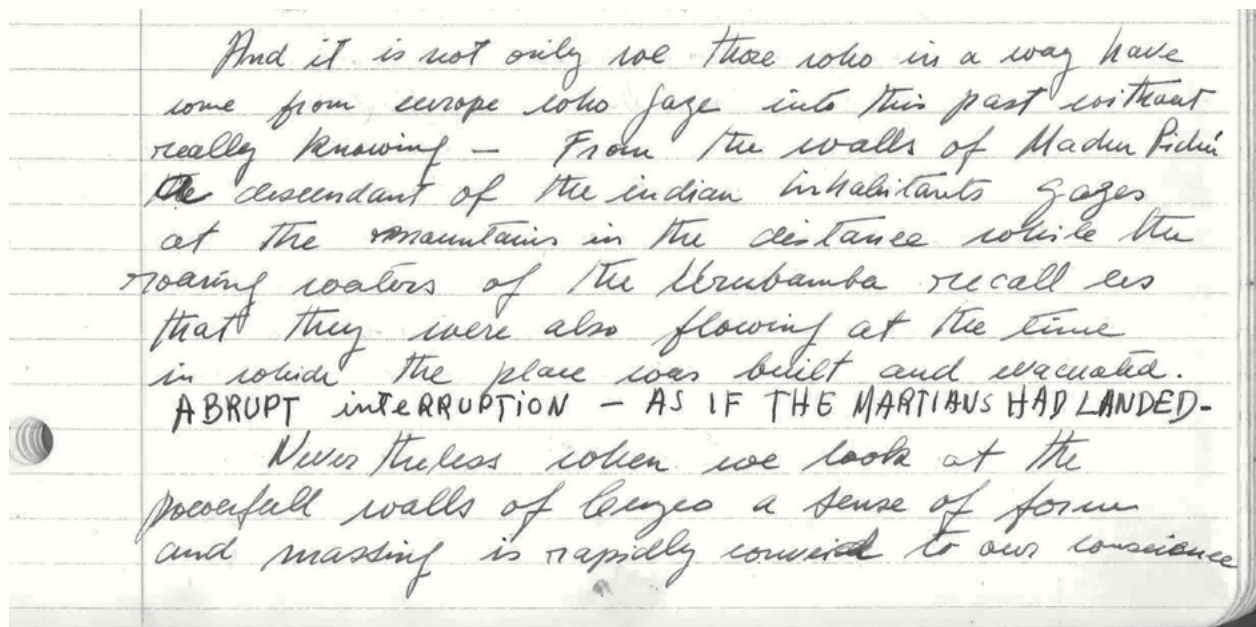 And it is not only we those who in a way have
come from europe who gaze into this past without
really knowing — From the walls of Machu Pichú
the descendant of the indian inhabitants gazes
at the mountains in the distance while the
roaring waters of the Urubamba recall us
that they were also flowing at the time
in which the place was built and evacuated.
ABRUPT inteRRUPTiON — AS IF THE MARTIANS HAD LANDED-
Never theless when we look at the
powerfull walls of Cuzco a sense of form
and massing is rapidly to our conscience